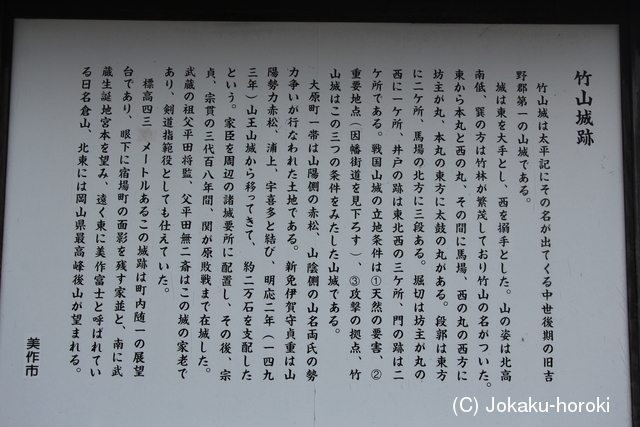 竹山城跡
竹山城は太平記にその名が出てくる中世後期の旧吉
野郡第一の山城である。
城は東を大手とし、西を搦手とした。山の姿は北高
南低、巽の方は竹林が繁茂しており竹山の名がついた。
東から本丸と西の丸、その間に馬場、西の丸の西方に
坊主が丸、本丸の東方に太鼓の丸がある。段郭は東方
に二ケ所、馬場の北方に三段ある。堀切は坊主が丸の
西に一ケ所、井戸の跡は東北西の三ケ所、門の跡は二
ケ所である。戦国山城の立地条件は①天然の要害、②
重要地点(因幡街道を見下ろす)、③攻撃の拠点、竹
山城はこの三つの条件をみたした山城である。
大原町一帯は山陽側の赤松、山陰側の山名両氏の勢
力争いが行なわれた土地である。新免伊賀守貞重は山
陽勢力赤松、浦上、宇喜多と結び、明応二年(一四九
三年)山王山城から移ってきて、約二万石を支配した
という。家臣を周辺の諸城要所に配置し、その後、宗
貞、宗貫の三代百八年間、関が原敗戦まで在城した。
武蔵の祖父平田将監、父平田無二斎はこの城の家老で
あり、剣道指範役としても仕えていた。
標高四三〇メートルあるこの城跡は町内随一の展望
台であり、眼下に宿場町の面影を残す家並と、南に武
蔵生誕地宮本を望み、遠く東に美作富士と呼ばれてい
る日名倉山、北東には岡山県最高峰後山が望まれる。
美作市
(C) Jokaku-horoki